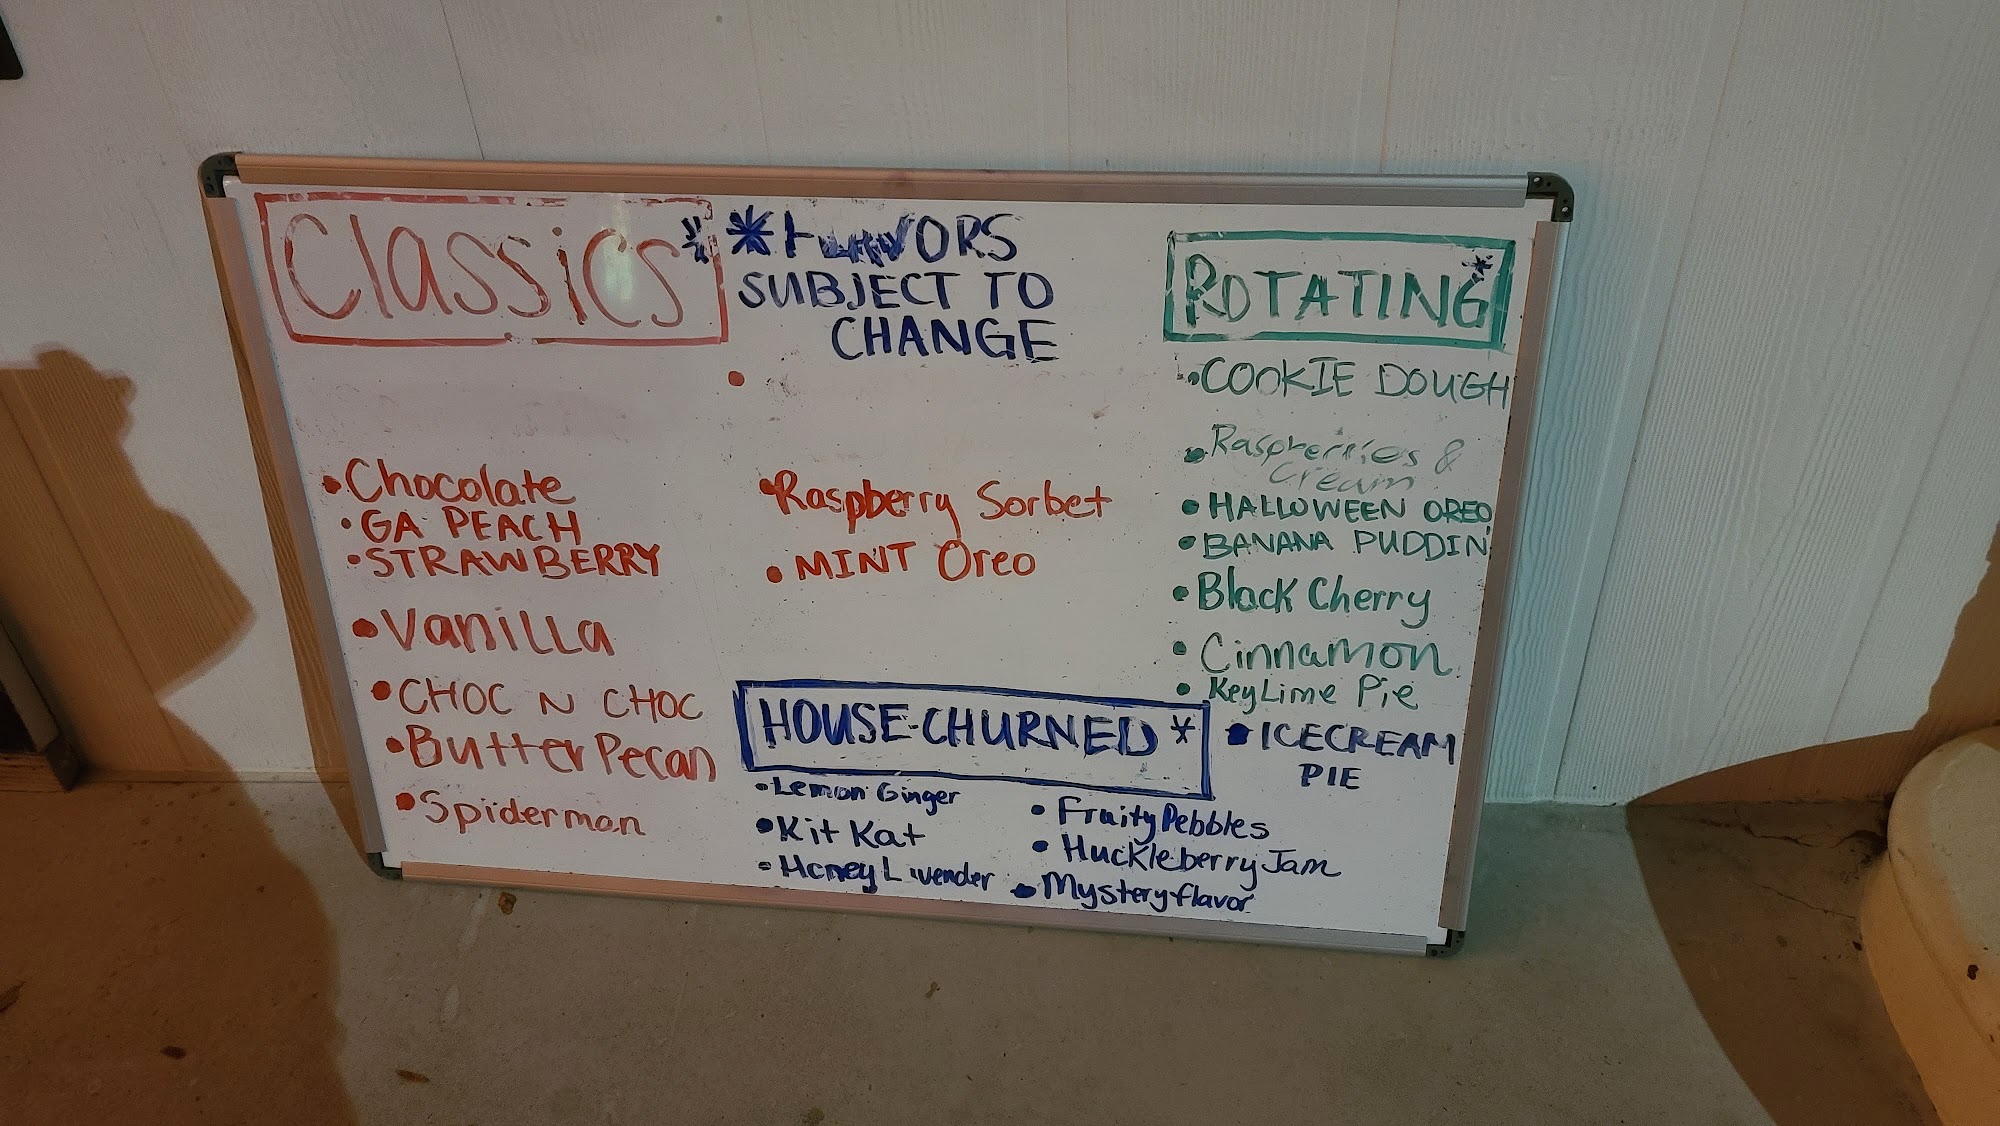 Classics*
• Chocolate
• GA PEACH
• STRAWBERRY
• Vanilla
• CHOC N CHOC
• Butter Pecan
• Spiderman
*FLAVORS
SUBJECT TO
CHANGE
•
• Raspberry Sorbet
• MINT Oreo
ROTATING*
• COOKIE DOUGH
• Raspberries &
Cream
• HALLOWEEN OREO
• BANANA PUDDIN
• Black Cherry
• Cinnamon
• Key Lime Pie
HOUSE-CHURNED*
• Lemon Ginger
• Kit Kat
• Honey Lavender
• Fruity Pebbles
• Huckleberry Jam
• Mystery flavor
• ICECREAM
PIE